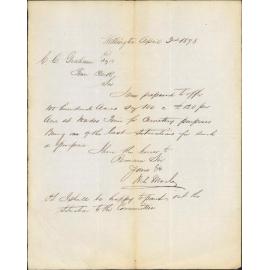 Wellington April 2nd 1873
C. C. Graham Esqr
Town Clerk
Sir
I am prepared to offer
one hundred Acres Sy No 2 at £20 per
Acre at Wades Town for Cemetery purposes
Being one of the best Situations for such
a purpose
I have the honor to
Remain Sir
Yours &c
I shall be happy to point out the
situation to the Committee